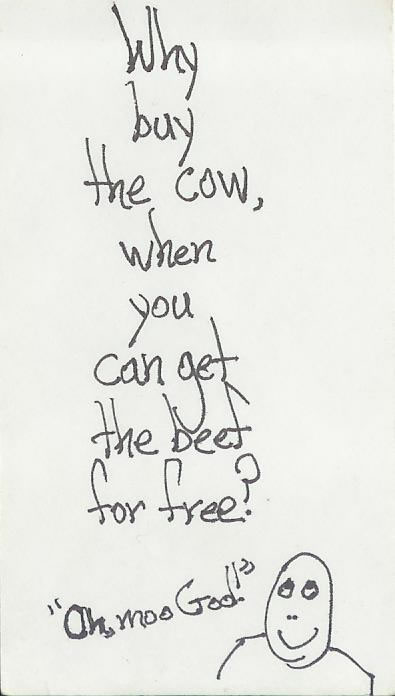 Why
buy
the cow,
when
you
can get
the beef
for free?
"Oh, moo God!"